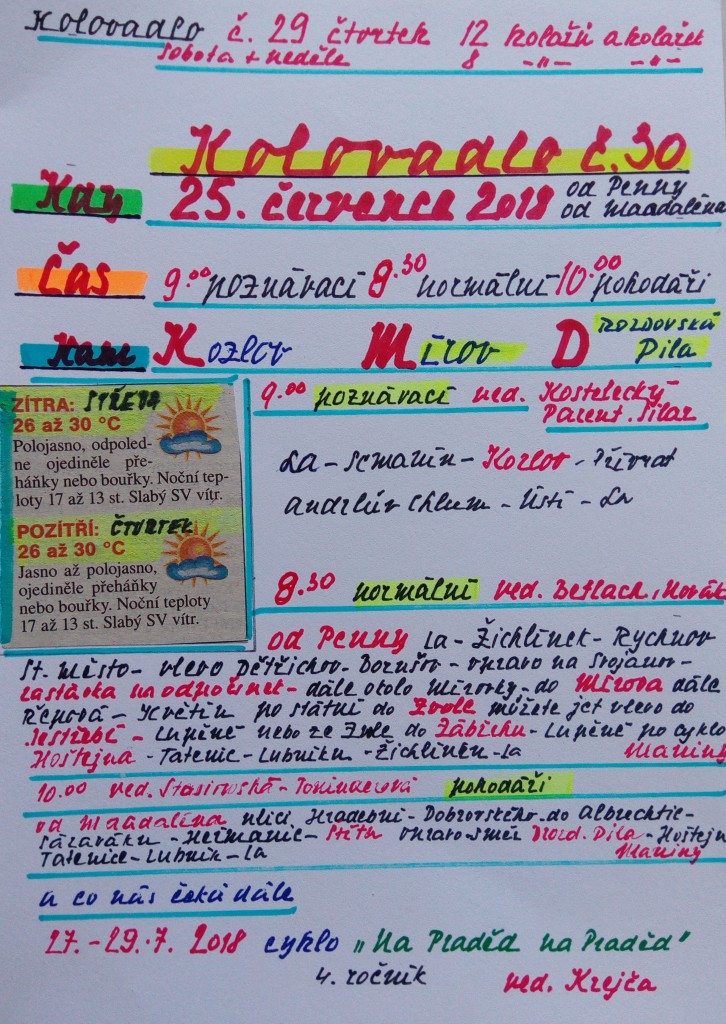 Kolovadlo č. 29 čtvrtek 12 kolařů a kolařek
sobota + neděle 8 -"- -"-
Kolovadlo č.30
Kdy 25. července 2018 od Penny
od Magdaléna
Čas 9.00 poznávací 8.30 normální 10.00 pohodáři
Kam Kozlov Mírov Drozdovská
Pila
ZÍTRA: STŘEDA
26 až 30 °C
Polojasno, odpoled-
ne ojediněle pře-
háňky nebo bouřky. Noční tep-
loty 17 až 13 st. Slabý SV vítr.
POZÍTŘÍ: ČTVRTEK
26 až 30 °C
Jasno až polojasno,
ojediněle přeháňky
nebo bouřky. Noční teploty
17 až 13 st. Slabý SV vítr.
9.00 poznávací ved. Kostelecký-
Parent. Silar
La - Semanín - Kozlov - Přívrat
Andrlův Chlum - Ústí - La
8.30 normální ved. Betlach, Novák
od Penny La - Žichlínek - Rychnov
St. Město - vlevo Dětřichov - Borušov - vpravo na Svojanov -
zastávka na odpočinek - dále okolo Mírovky - do Mírova dále
Řepová - Květín po státní do Zvole můžete jet vlevo do
Jestřebí - Lupěné nebo ze Zvole do Zábřehu - Lupěné po cyklo
Hoštejna - Tatenic - Lubníku - Žichlínku - La Maniny
10.00 ved. Stasiowská - Pohodáři
od Magdaléna ulicí Hradební - Dobrovského do Albrechtic -
Sázaváku - Heřmanic - Štítů vpravo směr Drozd. Pila - Hoštejn
Tatenice - Lubník - La Maniny
a co nás čeká dále
27.-29.7. 2018 cyklo "Na Praděd na Praděd"
4. ročník ved. Krejča